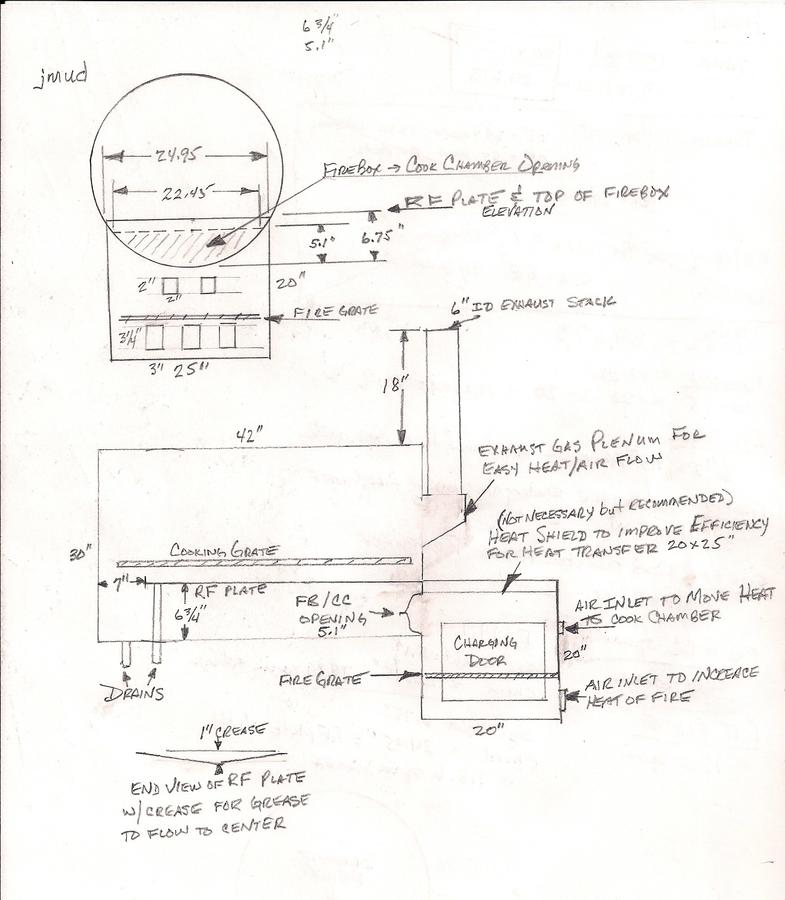 6 3/4"
5.1"
jmud
24.95
FIREBOX → COOK CHAMBER OPENING
22.45
RF PLATE & TOP OF FIREBOX
ELEVATION
5.1"
6.75"
2"
2"
20"
FIRE GRATE
3 1/4"
3" 25"
6" ID EXHAUST STACK
18"
42"
EXHAUST GAS PLENUM FOR
EASY HEAT/AIR FLOW
(NOT NECESSARY but RECOMMENDED)
HEAT SHIELD TO IMPROVE EFFICIENCY
FOR HEAT TRANSFER 20x25"
30"
COOKING GRATE
7"
RF PLATE
6 3/4"
FB/CC
OPENING
5.1"
AIR INLET TO MOVE HEAT
TO COOK CHAMBER
CHARGING
DOOR
20"
FIRE GRATE
AIR INLET TO INCREASE
HEAT OF FIRE
DRAINS
20"
1" CREASE
END VIEW OF RF PLATE
W/CREASE FOR GREASE
TO FLOW TO CENTER